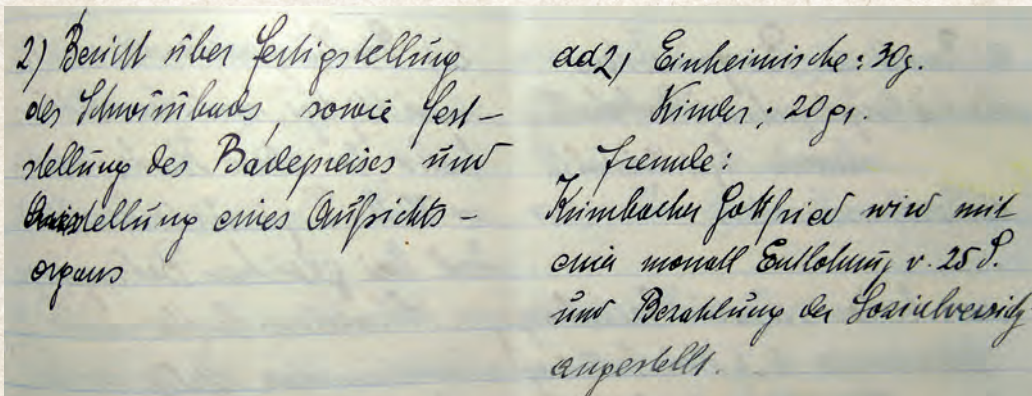 2) Bericht über Fertigstellung
des Schwimmbads, sowie Fest-
stellung des Badepreises und
Anstellung eines Aufsichts-
organs
ad 2) Einheimische: 30 g.
Kinder: 20 gr.
Fremde:
Krimbacher Gottfried wird mit
einer monatl Entlohnung v. 25 S.
und Bezahlung der Sozialversichg
angestellt.